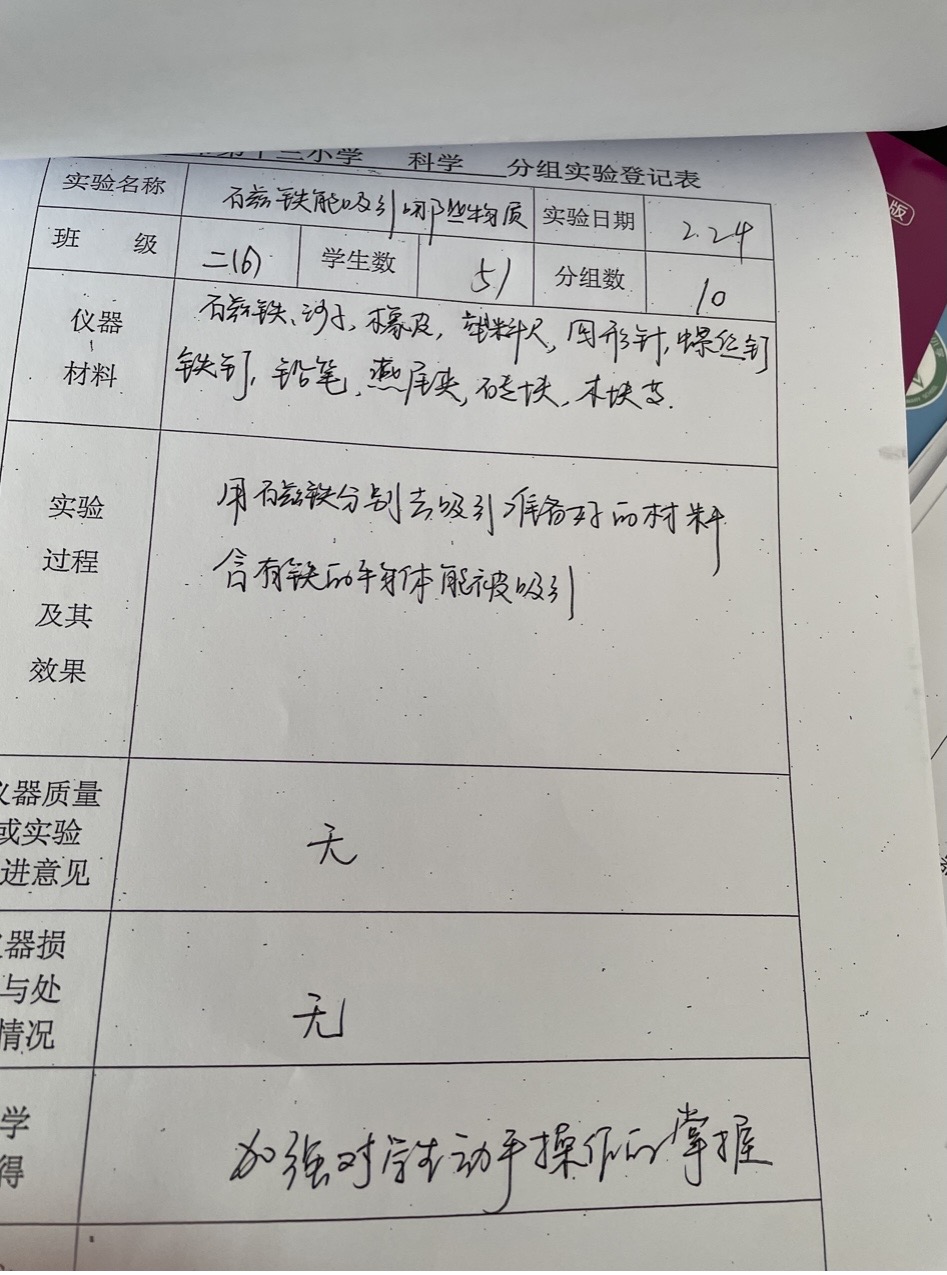 第十三小学 科学 分组实验登记表
实验名称 石兹铁能吸引哪些物质 实验日期 2.24
班 级 二(6) 学生数 51 分组数 10
仪器
材料
石兹铁、沙子、橡皮,塑料尺,回形针,螺丝钉
铁钉,铅笔,燕尾夹,砖块、木块等.
实验
过程
及其
效果
用石兹铁分别去吸引准备好的材料
含有铁的物体能被吸引
仪器质量
或实验
进意见
无
器损
与处
情况
无
学
得
加强对学生动手操作的掌握
版